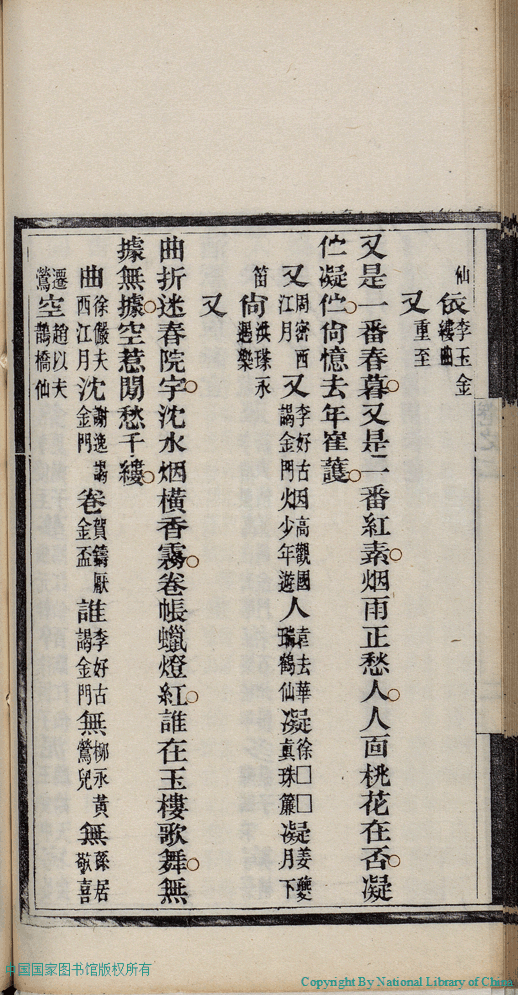 仙 依李玉金縷曲
又重至
又是一番春暮又是二番紅素烟雨正愁人人面桃花在否凝
伫凝伫尚憶去年崔護
又周密西江月又李好古謁金門烟高觀國少年遊人袁去華瑞鶴仙凝徐□□真珠簾凝姜夔月下
笛尚洪瑹永遇樂
又
曲折迷春院宇沈水烟橫香霧卷帳蠟燈紅誰在玉樓歌舞無
據無據空惹閒愁千縷
曲徐儼夫西江月沈謝逸謁金門卷賀鑄厭金盃誰李好古謁金門無柳永黃鶯兒無孫居敬喜
遷鶯空趙以夫鵲橋仙
中国国家图书馆版权所有
Copyright By National Library of China